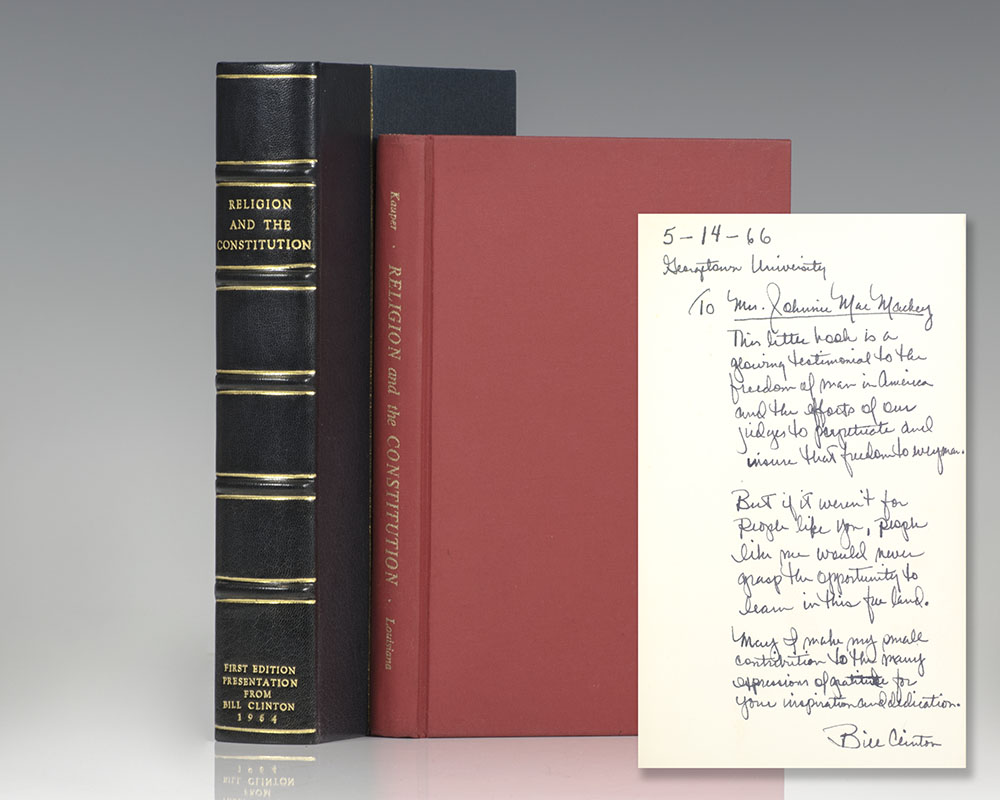 RELIGION
AND THE
CONSTITUTION
FIRST EDITION
PRESENTATION
FROM
BILL CLINTON
1964
Kauper · RELIGION and the CONSTITUTION · Louisiana
5-14-66
Georgetown University
To Mrs. Johnnie Mae Mackey
This little book is a
glowing testimonial to the
freedom of man in America
and the efforts of our
judges to perpetuate and
insure that freedom to everyman.
But if it weren't for
people like you, people
like me would never
grasp the opportunity to
learn in this free land.
May I make my small
contribution to the many
expressions of gratitude for
your inspiration and dedication.
Bill Clinton
1964
BILL CLINTON
FROM